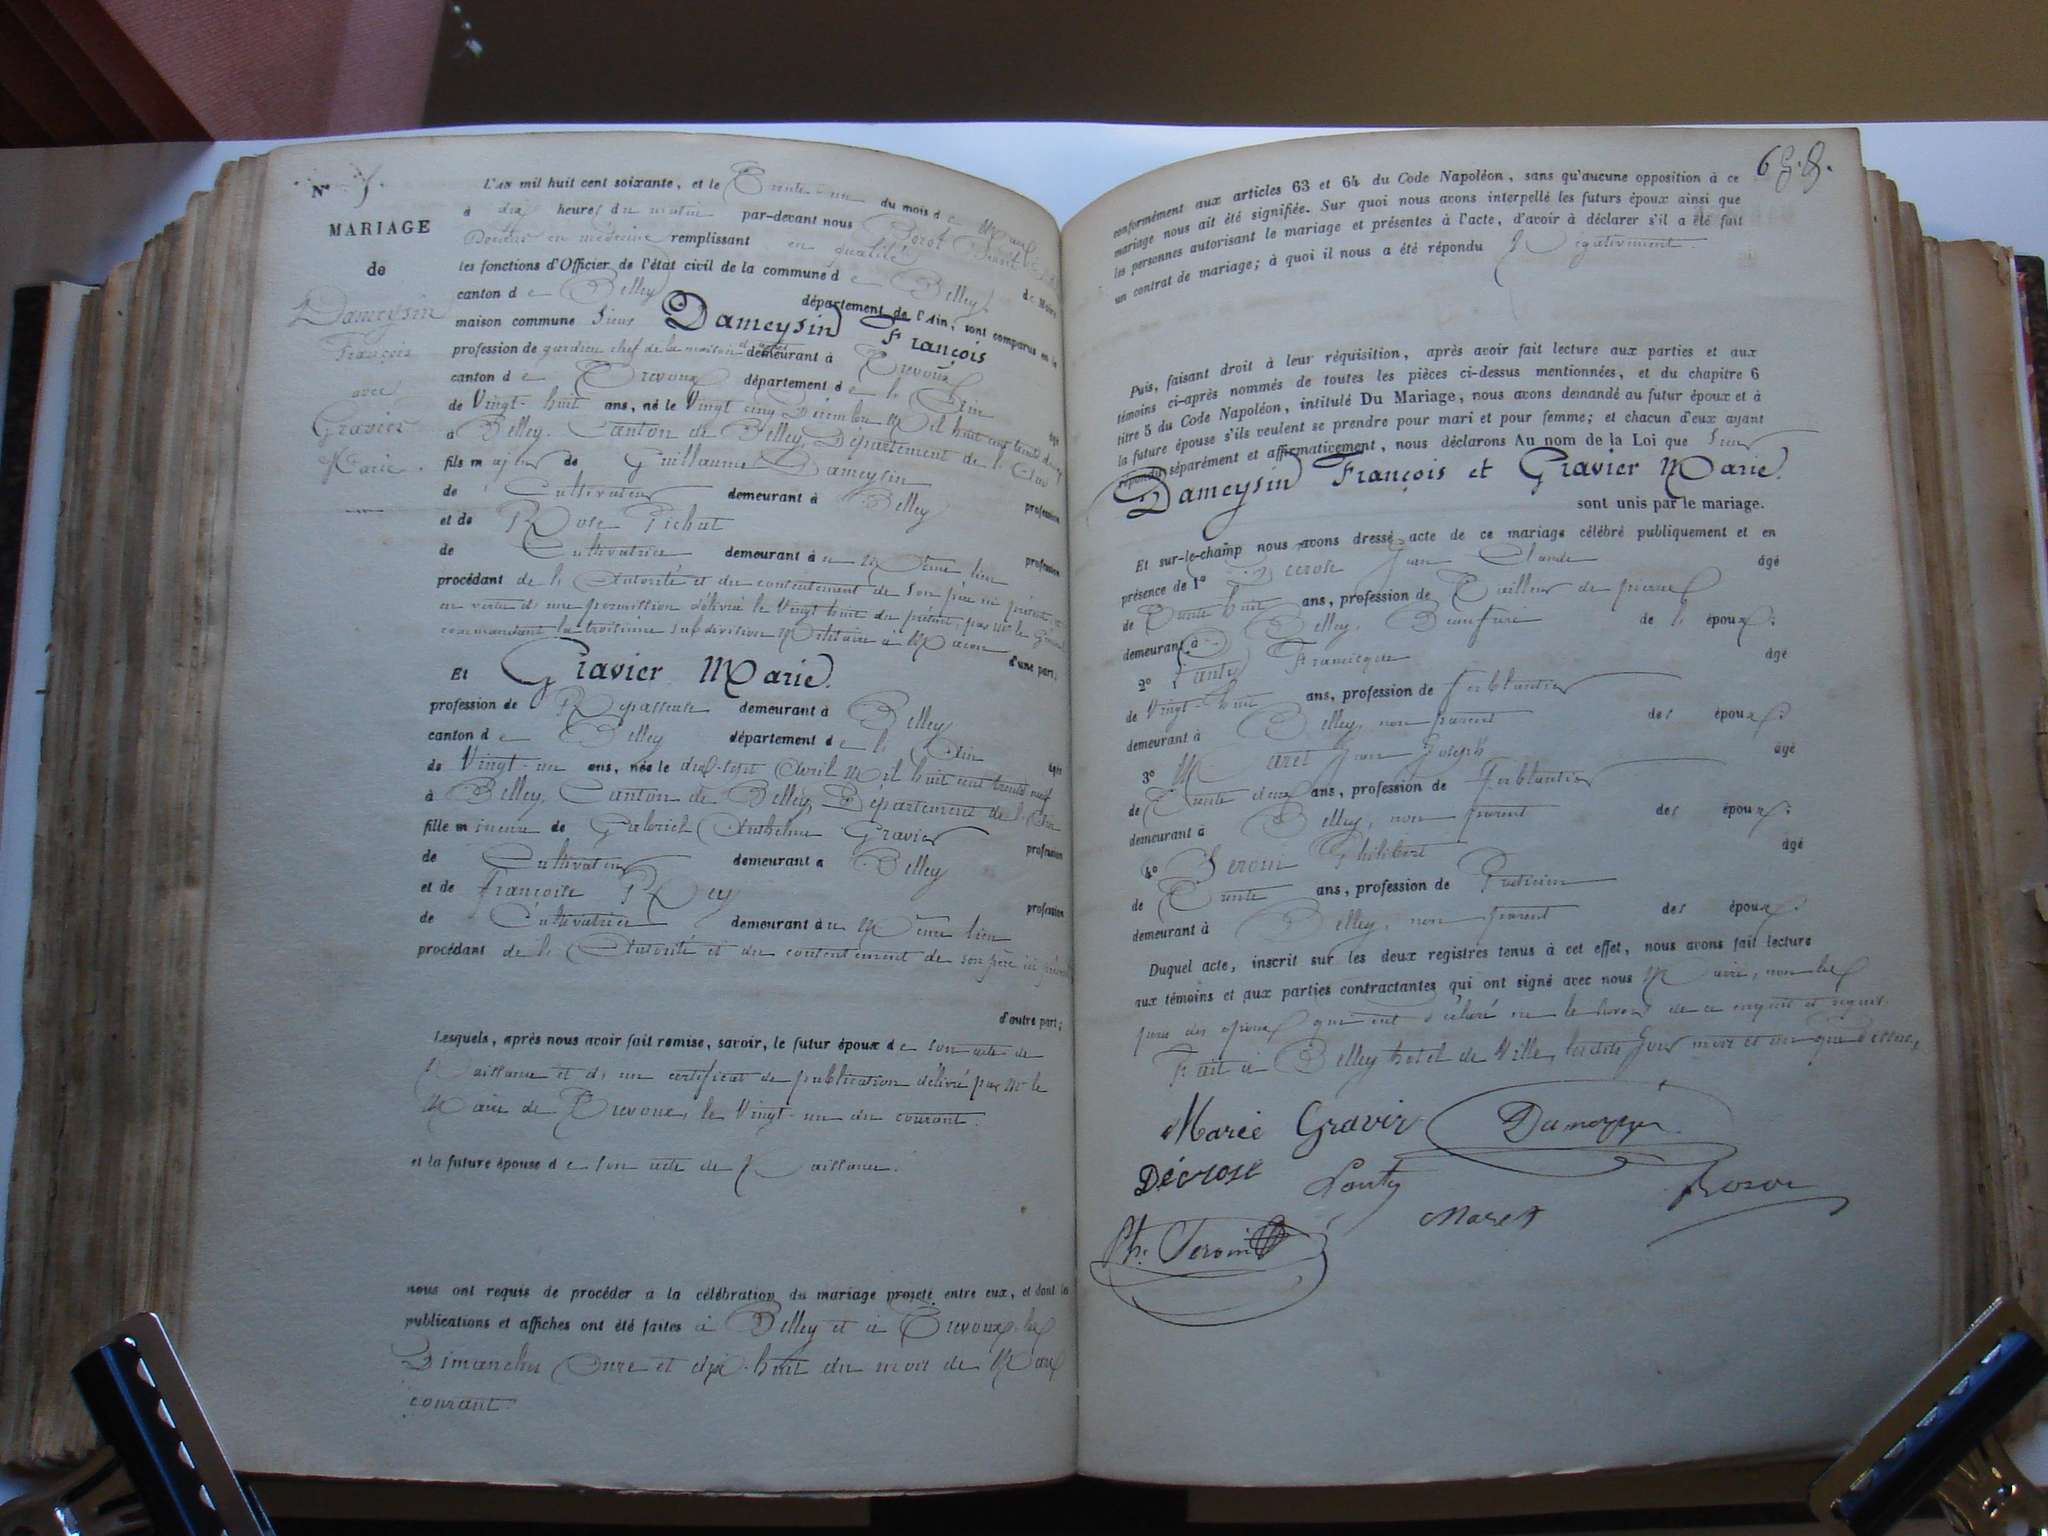 N°
MARIAGE
de
Dameysin
François
avec
Gravier
Marie.
L'An mil huit cent soixante, et le Trente-un du mois de Mars
à dix heures du matin par-devant nous
Docteur en médecine remplissant en qualité de Maire
les fonctions d'Officier de l'état civil de la commune de Belley
canton de Belley département de l'Ain, sont comparus en la
maison commune Sieur Dameysin François
profession de gardien chef de la maison demeurant à Trevoux
canton de Trevoux département de l'Ain âgé
de Vingt-huit ans, né le Vingt cinq Décembre Mil huit cent trente
à Belley, Canton de Belley, Département de l'Ain
fils majeur de Guillaume Dameysin profession
de Cultivateur demeurant à Belley
et de Rose Pichat profession
de Cultivatrice demeurant au Même lieu
procédant de l'Autorité et du consentement de son père ici présent, et
en vertu d'une permission délivrée le Vingt huit du présent, par Mr le Général
commandant la troisième subdivision Militaire à Macon d'une part;
Et Gravier Marie.
profession de Repasseuse demeurant à Belley
canton de Belley département de l'Ain âgée
de Vingt-un ans, née le dix-sept Avril Mil huit cent trente neuf
à Belley, Canton de Belley, Département de l'Ain
fille mineure de Gabriel Anthelme Gravier profession
de Cultivateur demeurant à Belley
et de Françoise Rey profession
de Cultivatrice demeurant au Même lieu
procédant de l'Autorité et du consentement de son père ici présent
d'autre part;
Lesquels, après nous avoir fait remise, savoir, le futur époux de son acte de
Naissance et d'un certificat de publication délivré par Mr le
Maire de Trevoux, le Vingt-un du courant.
et la future épouse de son acte de Naissance.
nous ont requis de procéder a la célébration du mariage projeté entre eux, et dont les
publications et affiches ont été faites à Belley et à Trevoux les
Dimanches Onze et dix-huit du mois de Mars
courant.
conformément aux articles 63 et 64 du Code Napoléon, sans qu'aucune opposition à ce
mariage nous ait été signifiée. Sur quoi nous avons interpellé les futurs époux ainsi que
les personnes autorisant le mariage et présentes à l'acte, d'avoir à déclarer s'il a été fait
un contrat de mariage; à quoi il nous a été répondu Négativement
Puis, faisant droit à leur réquisition, après avoir fait lecture aux parties et aux
témoins ci-après nommés de toutes les pièces ci-dessus mentionnées, et du chapitre 6
titre 5 du Code Napoléon, intitulé Du Mariage, nous avons demandé au futur époux et à
la future épouse s'ils veulent se prendre pour mari et pour femme; et chacun d'eux ayant
répondu séparément et affirmativement, nous déclarons Au nom de la Loi que Sieur
Dameysin François et Gravier Marie.
sont unis par le mariage.
Et sur-le-champ nous avons dressé acte de ce mariage célébré publiquement et en
présence de 1° Décrose Jean Claude âgé
de Trente huit ans, profession de Tailleur de pierres
demeurant à Belley, Beaufrère de l'époux;
2° Lanty Francisque âgé
de Vingt-huit ans, profession de ferblantier
demeurant à Belley, non parent des époux;
3° Maret Jean Joseph âgé
de Trente deux ans, profession de Ferblantier
demeurant à Belley, non parent des époux;
4° Seroin Philibert âgé
de Trente ans, profession de Praticien
demeurant à Belley, non parent des époux.
Duquel acte, inscrit sur les deux registres tenus à cet effet, nous avons fait lecture
aux témoins et aux parties contractantes qui ont signé avec nous Maire, non les
pères des époux qui ont déclaré ne le savoir de ce enquis et requis.
Fait à Belley hotel de Ville, lesdits jour mois et an que dessus,
Marie Gravir
Décrose Lanty
Maret
Ph. Seroin